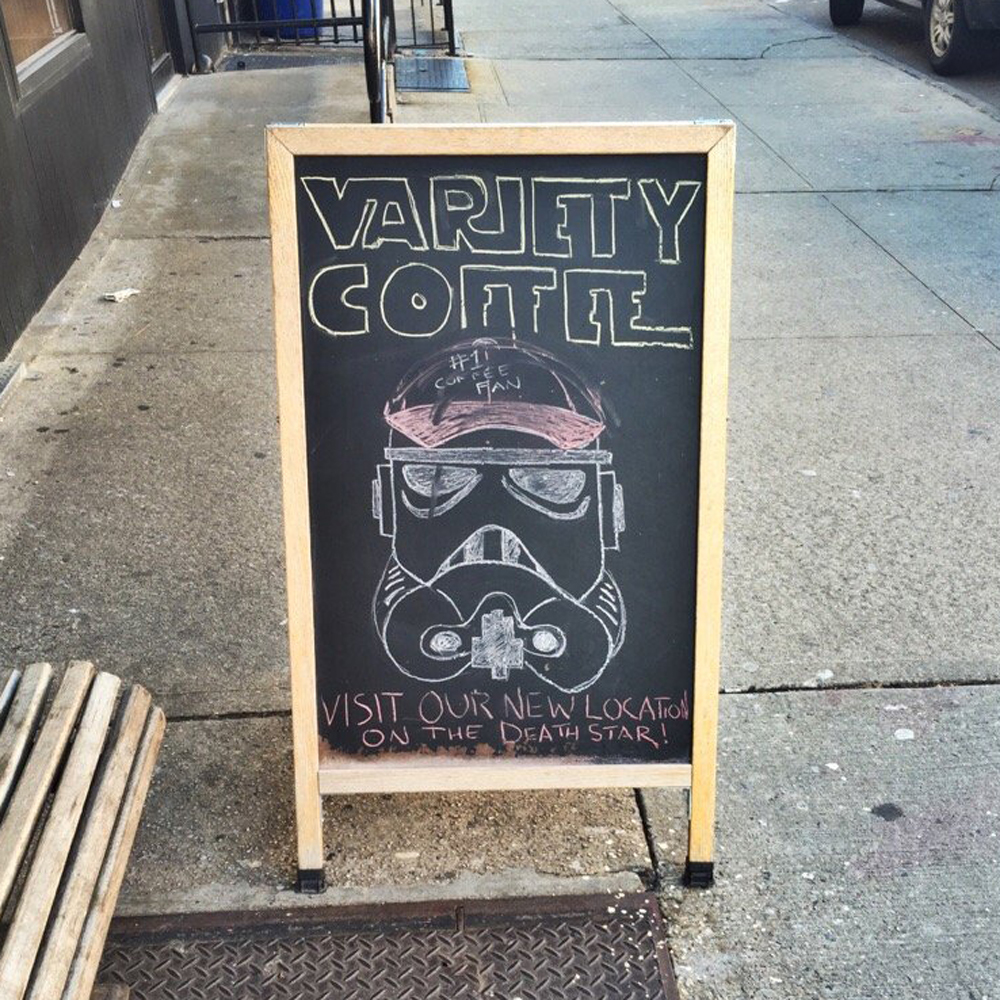 VARIETY
COFFEE
#1
COFFEE
FAN
VISIT OUR NEW LOCATION
ON THE DEATH STAR!